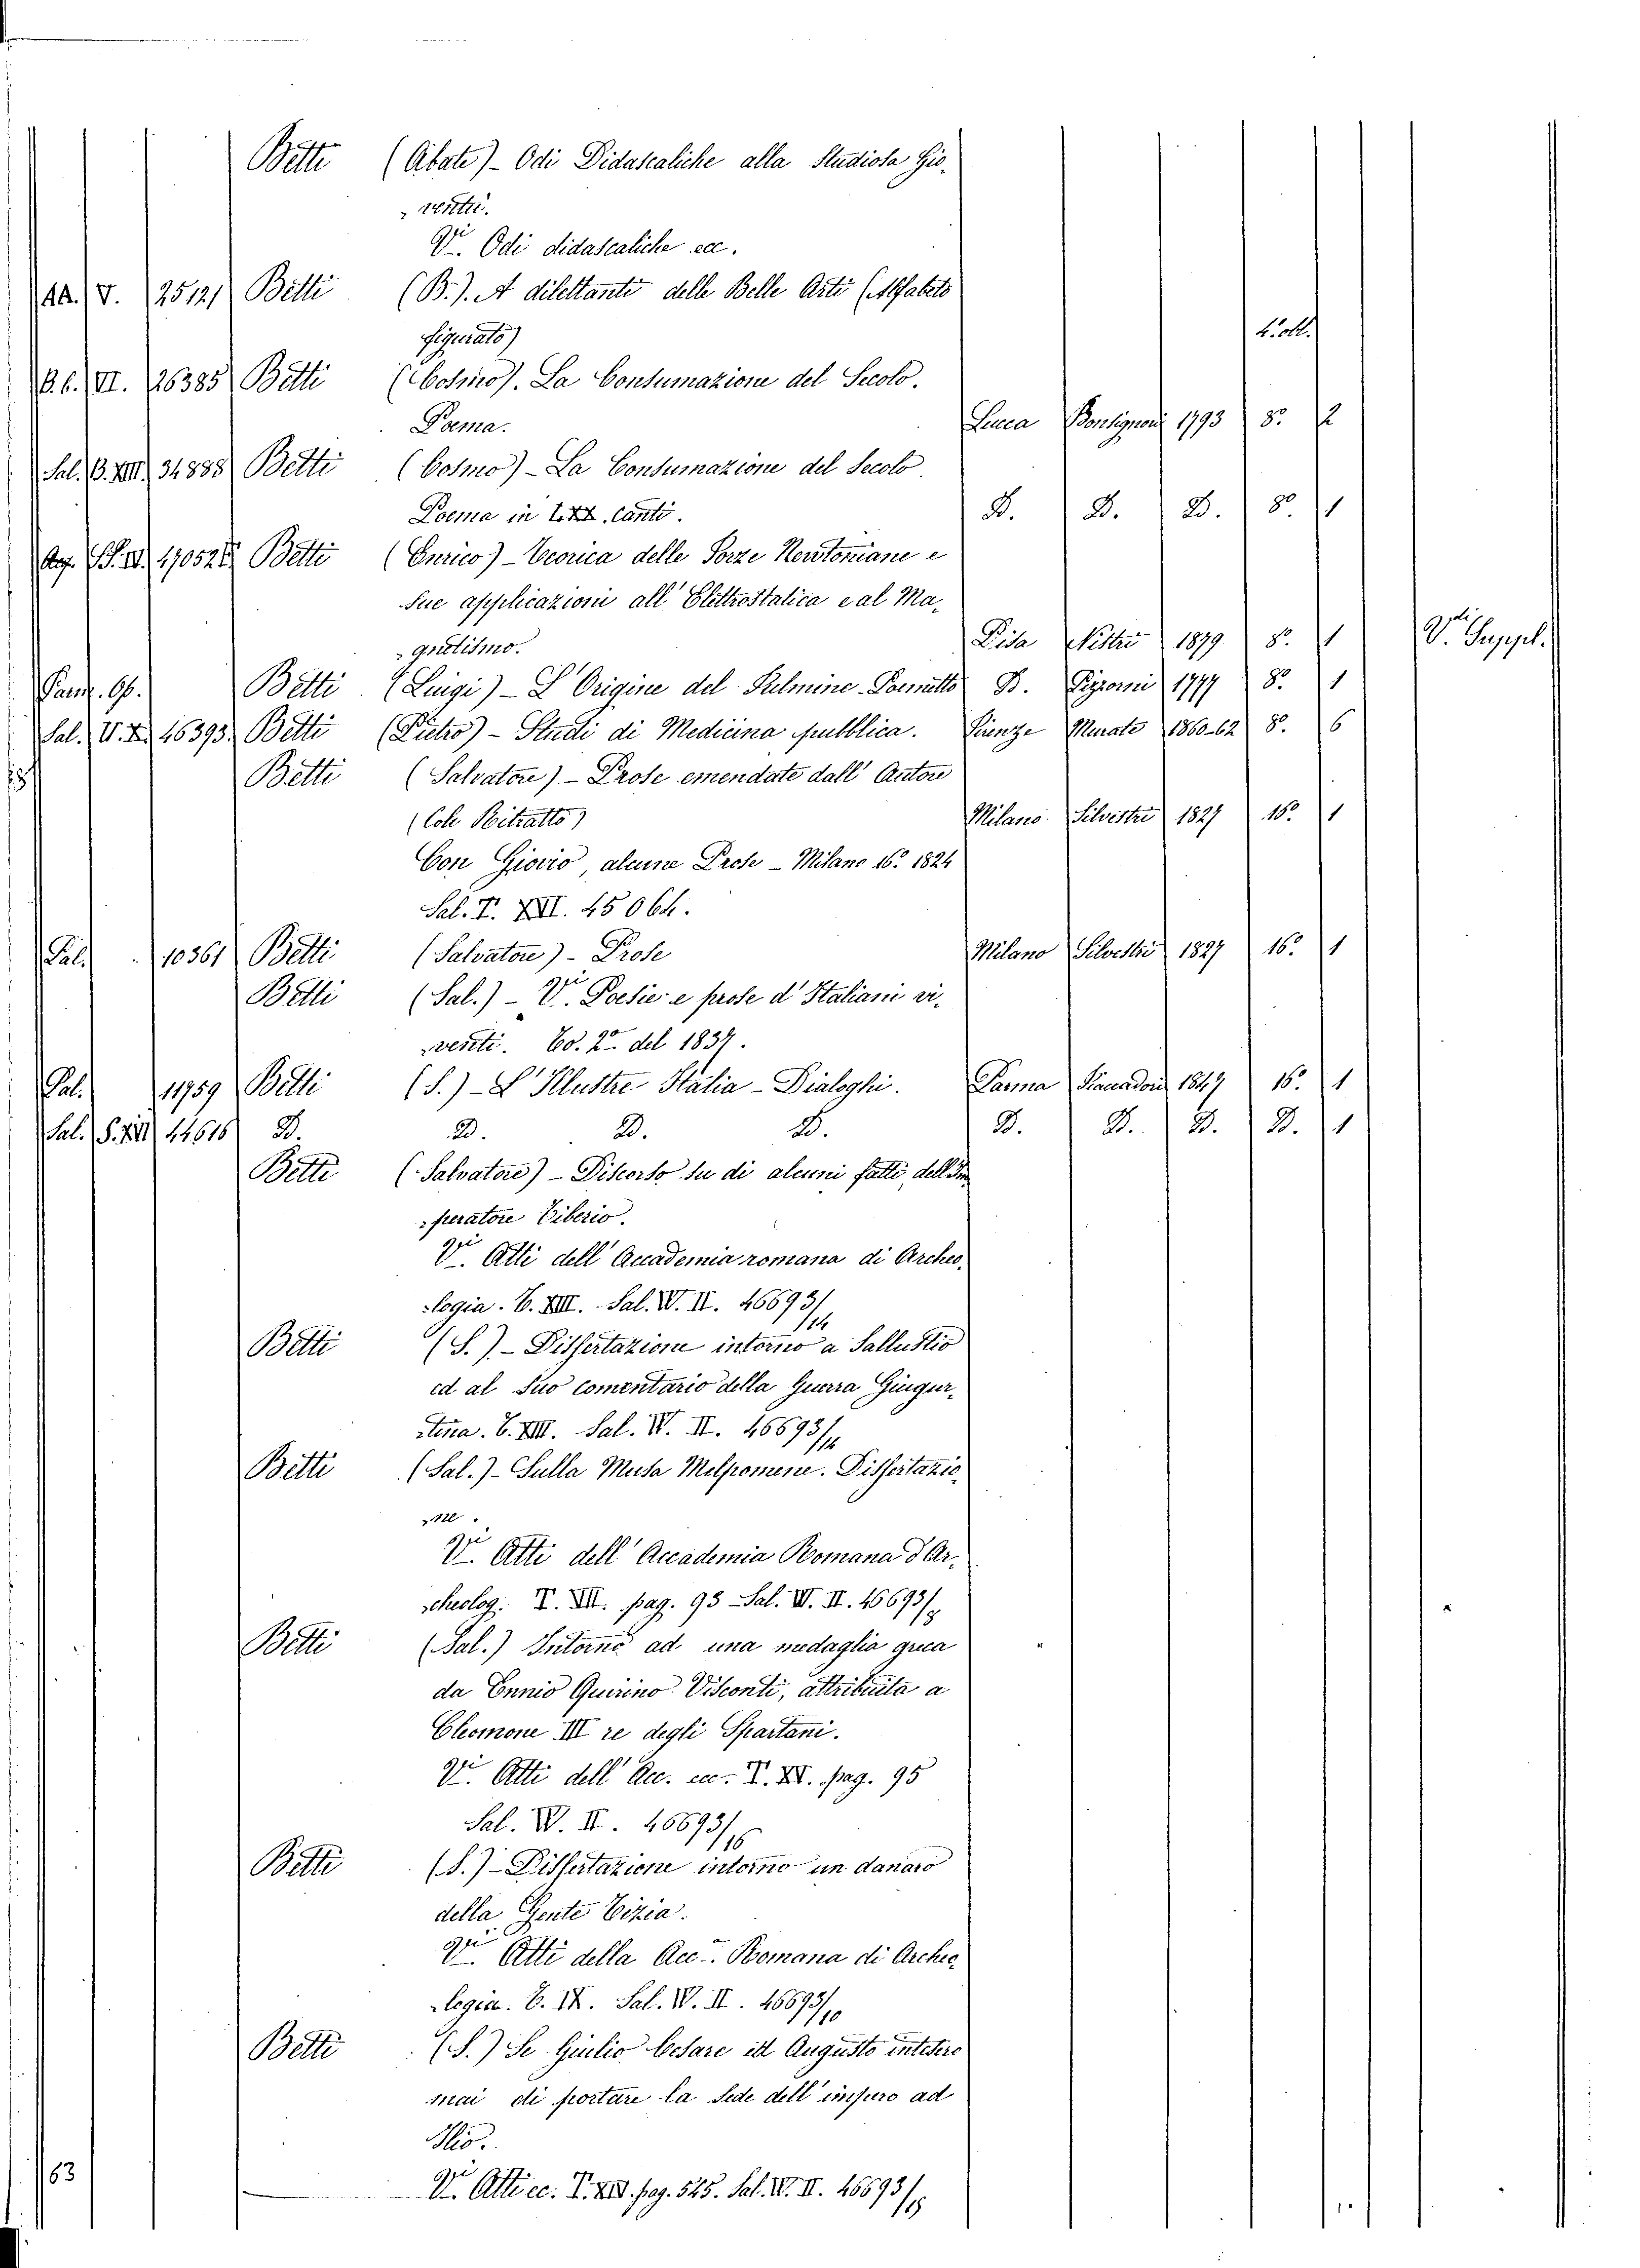 Betti (Abate) - Odi Didascaliche alla Studiosa Gio-
ventù.
Vi. Odi didascaliche ecc.
AA. V. 25121 Betti (B.). A dilettante delle Belle Arti (Alfabeto
figurato)
4. obl.
VI. 26385 Betti (Cosmo). La Consumazione del Secolo.
Poema. Lucca Bonsignori 1793 8º 2
Sal. B. XIII. 34888 Betti (Cosmo) - La Consumazione del Secolo.
Poema in Canti. D. D. D. 8º 1
Betti (Enrico) - Teorica delle Forze Newtoniane e
sue applicazioni all' Elettrostatica e al Ma-
gnetismo. Pisa Nistri 1879 8º 1 Vdi Suppl.
Betti (Luigi) - L'Origine del Fulmine. Poemetto D. Pizzorni 1777 8º 1
Sal. V. X. 46393. Betti (Pietro) - Studi di Medicina pubblica. Firenze Murate 1860-62 8º 6
Betti (Salvatore) - Prose emendate dall' Autore
(Col Ritratto) Milano Silvestri 1827 16º 1
Con Giovio, alcune Prose - Milano 16º 1824
Sal. T. XII. 45064.
Pal. 10361 Betti (Salvatore) - Prose Milano Silvestri 1827 16º 1
Betti (Sal.) - Vi. Poesie e prose d' Italiani vi-
venti. Ed. 2ª del 1837.
Pal. 11959 Betti (S.) - L' Illustre Italia - Dialoghi. Parma Fiaccadori 1847 16º 1
Sal. S. XII 44616 D. D. D. D. D. D. D. D. 1
Betti (Salvatore) - Discorso su di alcuni fatti, dell' Im-
peratore Tiberio.
Vi. Atti dell' Accademia romana di Archeo-
logia. T. XIII. Sal. W. II. 46693/14
Betti (S.) - Dissertazione intorno a Sallustio
ed al suo comentario della Guerra Giugur-
tina. T. XIII. Sal. W. II. 46693/14
Betti (Sal.) - Sulla Musa Melpomene. Dissertazio-
ne.
Vi. Atti dell' Accademia Romana d' Ar-
cheolog. T. VII. pag. 93 - Sal. W. II. 46693/8
Betti (Sal.) Intorno ad una medaglia greca
da Ennio Quirino Visconti, attribuita a
Cleomone III re degli Spartani.
Vi. Atti dell' Acc. ecc. T. XV. pag. 95
Sal. W. II. 46693/16
Betti (S.) - Dissertazione intorno un danaro
della Gente Tizia.
Vi. Atti della Acc.ª Romana di Archeo-
logia. T. IX. Sal. W. II. 46693/10
Betti (S.) Se Giulio Cesare ed Augusto intesero
mai di portare la sede dell' impero ad
Ilio.
Vi. Atti ec. T. XIV. pag. 525. Sal. W. II. 46693/15
63